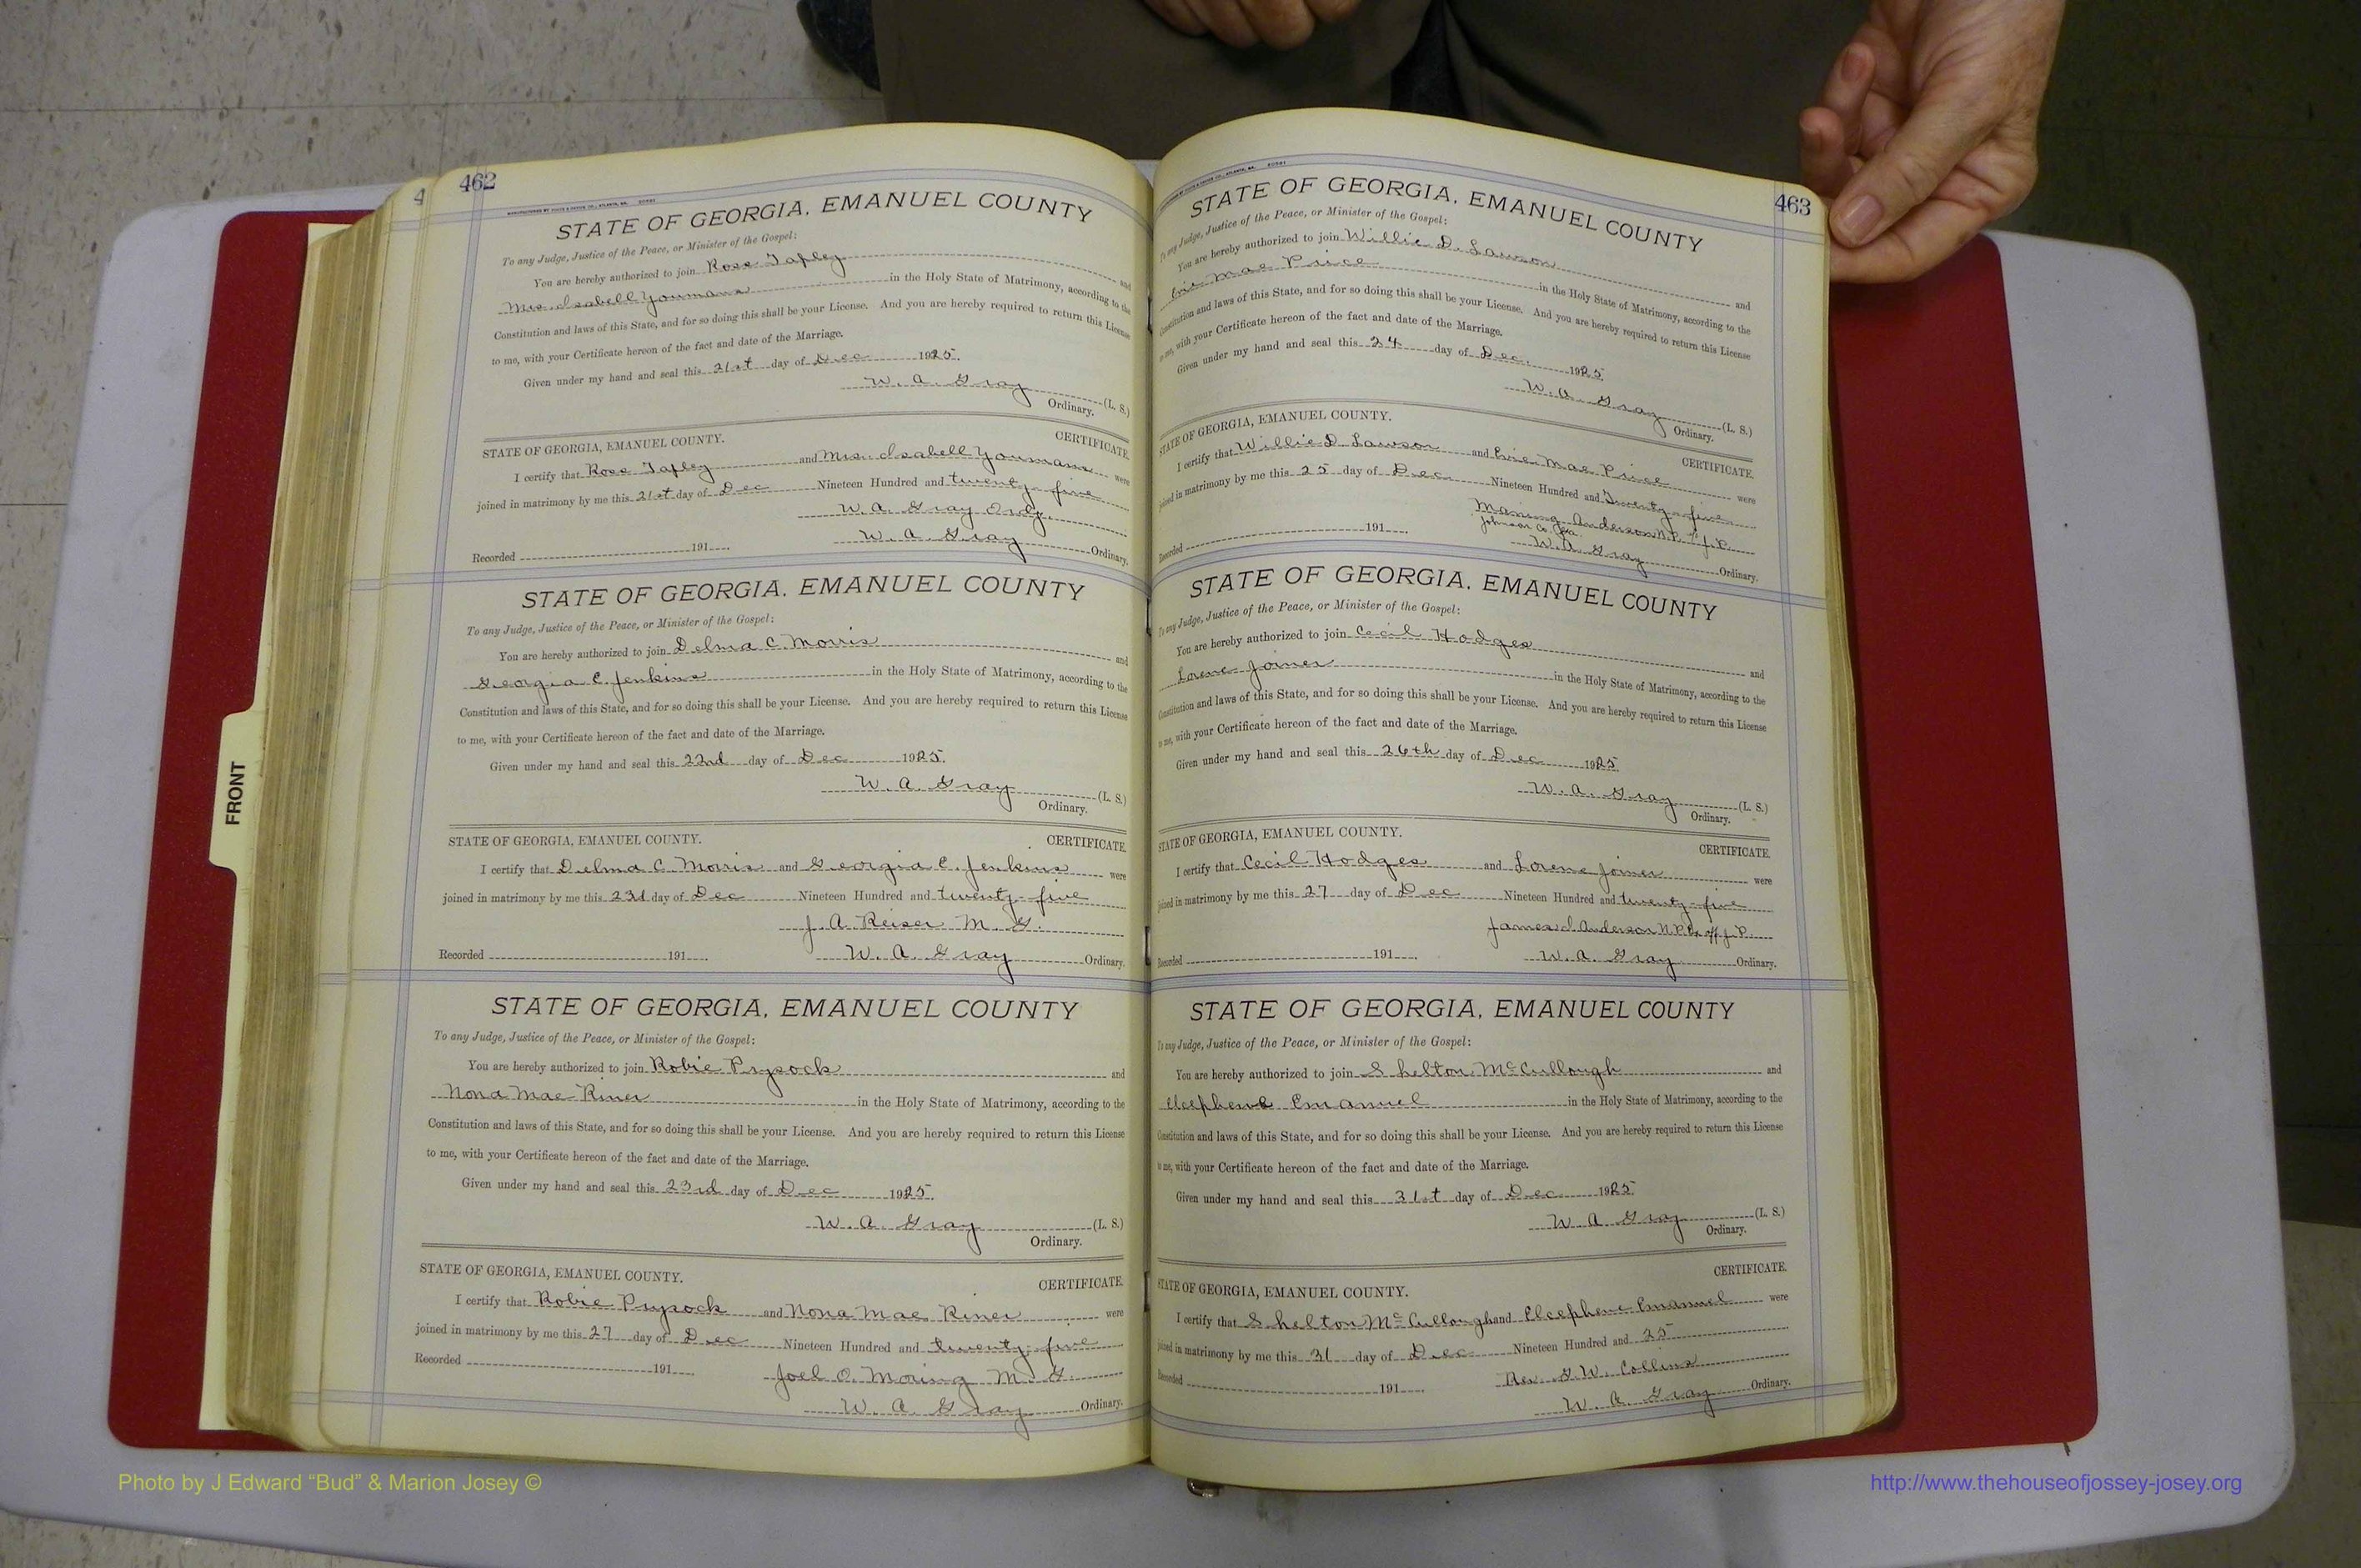 4
462
STATE OF GEORGIA, EMANUEL COUNTY
To any Judge, Justice of the Peace, or Minister of the Gospel:
You are hereby authorized to join Ross Tapley and
Mrs. Isabell Youmans in the Holy State of Matrimony, according to the
Constitution and laws of this State, and for so doing this shall be your License. And you are hereby required to return this License
to me, with your Certificate hereon of the fact and date of the Marriage.
Given under my hand and seal this 21st day of Dec 1925.
W. A. Gray (L. S.)
Ordinary.
STATE OF GEORGIA, EMANUEL COUNTY. CERTIFICATE.
I certify that Ross Tapley and Mrs. Isabell Youmans were
joined in matrimony by me this 21st day of Dec Nineteen Hundred and twenty-five
W. A. Gray Ordy.
Recorded 191 W. A. Gray Ordinary.
STATE OF GEORGIA, EMANUEL COUNTY
To any Judge, Justice of the Peace, or Minister of the Gospel:
You are hereby authorized to join Delma C. Morris and
Georgia E. Jenkins in the Holy State of Matrimony, according to the
Constitution and laws of this State, and for so doing this shall be your License. And you are hereby required to return this License
to me, with your Certificate hereon of the fact and date of the Marriage.
Given under my hand and seal this 22nd day of Dec 1925.
W. A. Gray (L. S.)
Ordinary.
STATE OF GEORGIA, EMANUEL COUNTY. CERTIFICATE.
I certify that Delma C. Morris and Georgia E. Jenkins were
joined in matrimony by me this 23d day of Dec Nineteen Hundred and twenty-five
J. A. Reiser M. G.
Recorded 191 W. A. Gray Ordinary.
STATE OF GEORGIA, EMANUEL COUNTY
To any Judge, Justice of the Peace, or Minister of the Gospel:
You are hereby authorized to join Robie Prysock and
Nona Mae Riner in the Holy State of Matrimony, according to the
Constitution and laws of this State, and for so doing this shall be your License. And you are hereby required to return this License
to me, with your Certificate hereon of the fact and date of the Marriage.
Given under my hand and seal this 23rd day of Dec 1925.
W. A. Gray (L. S.)
Ordinary.
STATE OF GEORGIA, EMANUEL COUNTY. CERTIFICATE.
I certify that Robie Prysock and Nona Mae Riner were
joined in matrimony by me this 27 day of Dec Nineteen Hundred and twenty-five
Recorded 191 Joel O. Moring M. G.
W. A. Gray Ordinary.
463
STATE OF GEORGIA, EMANUEL COUNTY
To any Judge, Justice of the Peace, or Minister of the Gospel:
You are hereby authorized to join Willie D. Lawson and
Evie Mae Price in the Holy State of Matrimony, according to the
Constitution and laws of this State, and for so doing this shall be your License. And you are hereby required to return this License
to me, with your Certificate hereon of the fact and date of the Marriage.
Given under my hand and seal this 24 day of Dec. 1925.
W. A. Gray (L. S.)
Ordinary.
STATE OF GEORGIA, EMANUEL COUNTY. CERTIFICATE.
I certify that Willie D. Lawson and Evie Mae Price were
joined in matrimony by me this 25 day of Dec. Nineteen Hundred and Twenty-five
Manning Anderson N.P. J.P.
Johnson Co. Ga.
Recorded 191 W. A. Gray Ordinary.
STATE OF GEORGIA, EMANUEL COUNTY
To any Judge, Justice of the Peace, or Minister of the Gospel:
You are hereby authorized to join Cecil Hodges and
Lorene Joiner in the Holy State of Matrimony, according to the
Constitution and laws of this State, and for so doing this shall be your License. And you are hereby required to return this License
to me, with your Certificate hereon of the fact and date of the Marriage.
Given under my hand and seal this 26th day of Dec 1925
W. A. Gray (L. S.)
Ordinary.
STATE OF GEORGIA, EMANUEL COUNTY. CERTIFICATE.
I certify that Cecil Hodges and Lorene Joiner were
joined in matrimony by me this 27 day of Dec Nineteen Hundred and twenty-five
James J. Anderson N.P. Ex off J.P.
Recorded 191 W. A. Gray Ordinary.
STATE OF GEORGIA, EMANUEL COUNTY
To any Judge, Justice of the Peace, or Minister of the Gospel:
You are hereby authorized to join Shelton McCullough and
Elcephene Emanuel in the Holy State of Matrimony, according to the
Constitution and laws of this State, and for so doing this shall be your License. And you are hereby required to return this License
to me, with your Certificate hereon of the fact and date of the Marriage.
Given under my hand and seal this 31st day of Dec 1925
W. A. Gray (L. S.)
Ordinary.
STATE OF GEORGIA, EMANUEL COUNTY. CERTIFICATE.
I certify that Shelton McCullough and Elcephene Emanuel were
joined in matrimony by me this 31 day of Dec Nineteen Hundred and 25
Recorded 191 Rev. G. W. Collins
W. A. Gray Ordinary.
FRONT
Photo by J Edward “Bud” & Marion Josey ©
http://www.thehouseofjossey-josey.org